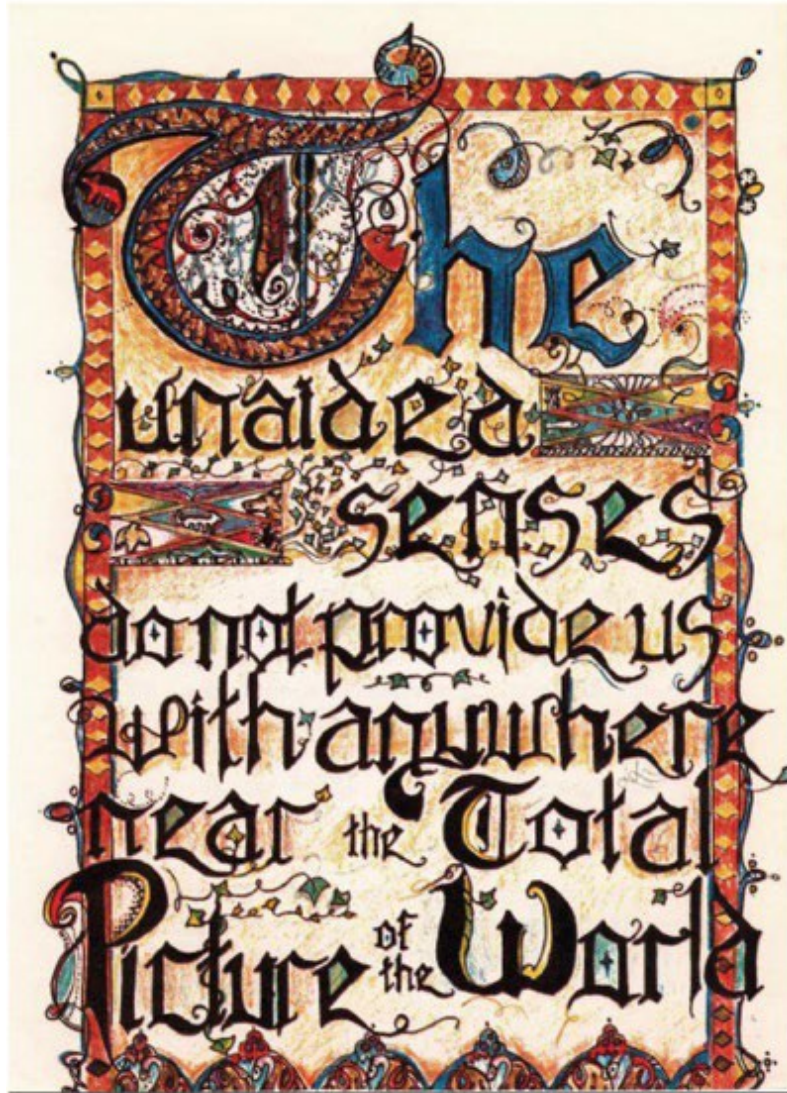 The
unaided
senses
do not provide us
with anywhere
near the Total
Picture of the World